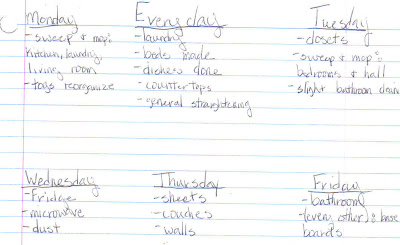 Monday
- sweep & mop:
kitchen, laundry,
living room
- toys reorganize
Everyday
- laundry
- beds made
- dishes done
- countertops
- general straightening
Tuesday
- closets
- sweep & mop:
bedrooms & hall
- slight bathroom clean
Wednesday
- fridge
- microwave
- dust
Thursday
- sheets
- couches
- walls
Friday
- bathroom
- (every other): base
boards